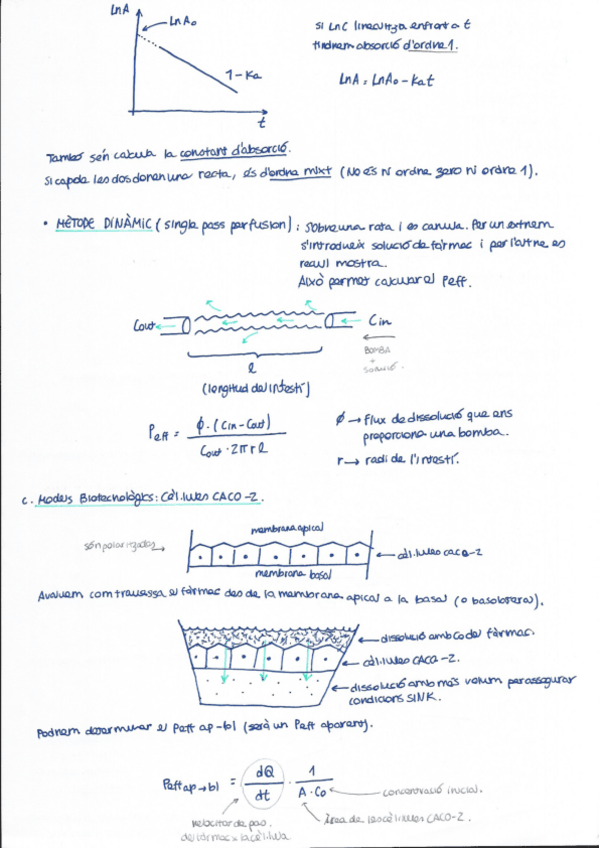 LnA
LnAo
1-Ka
t
si LnC linealitza enfront a t
tindrem absorció d'ordre 1.
LnA = LnAo - Kat
També se'n calcula la constant d'absorció.
Si cap de les dos donen una recta, és d'ordre mixt (No és ni ordre zero ni ordre 1).
• MÈTODE DINÀMIC (single pass perfusion): sobre una rata i es canula. Per un extrem
s'introdueix solució de fàrmac i per l'altre es
recull mostra.
Això permet calcular el Peff.
Cout
Cin
BOMBA
+
solució.
l
(longitud de l'intestí)
Peff = ϕ·(Cin-Cout) / Cout·2πrl
ϕ → flux de dissolució que ens
proporciona una bomba.
r → radi de l'intestí.
c. Models Biotecnològics: Cèl·lules CACO-2.
són polaritzades →
membrana apical
← cèl·lules CACO-2
membrana basal
Avaluem com travessa el fàrmac des de la membrana apical a la basal (o basolateral).
← dissolució amb Co del fàrmac.
← cèl·lules CACO-2.
← dissolució amb més volum per assegurar
condicions SINK.
Podrem determinar el Peff ap-bl (serà un Peff aparent).
Peff ap→bl = dQ/dt · 1/A·Co
concentració inicial.
velocitat de pas
del fàrmac x la cèl·lula
Àrea de les cèl·lules CACO-2.